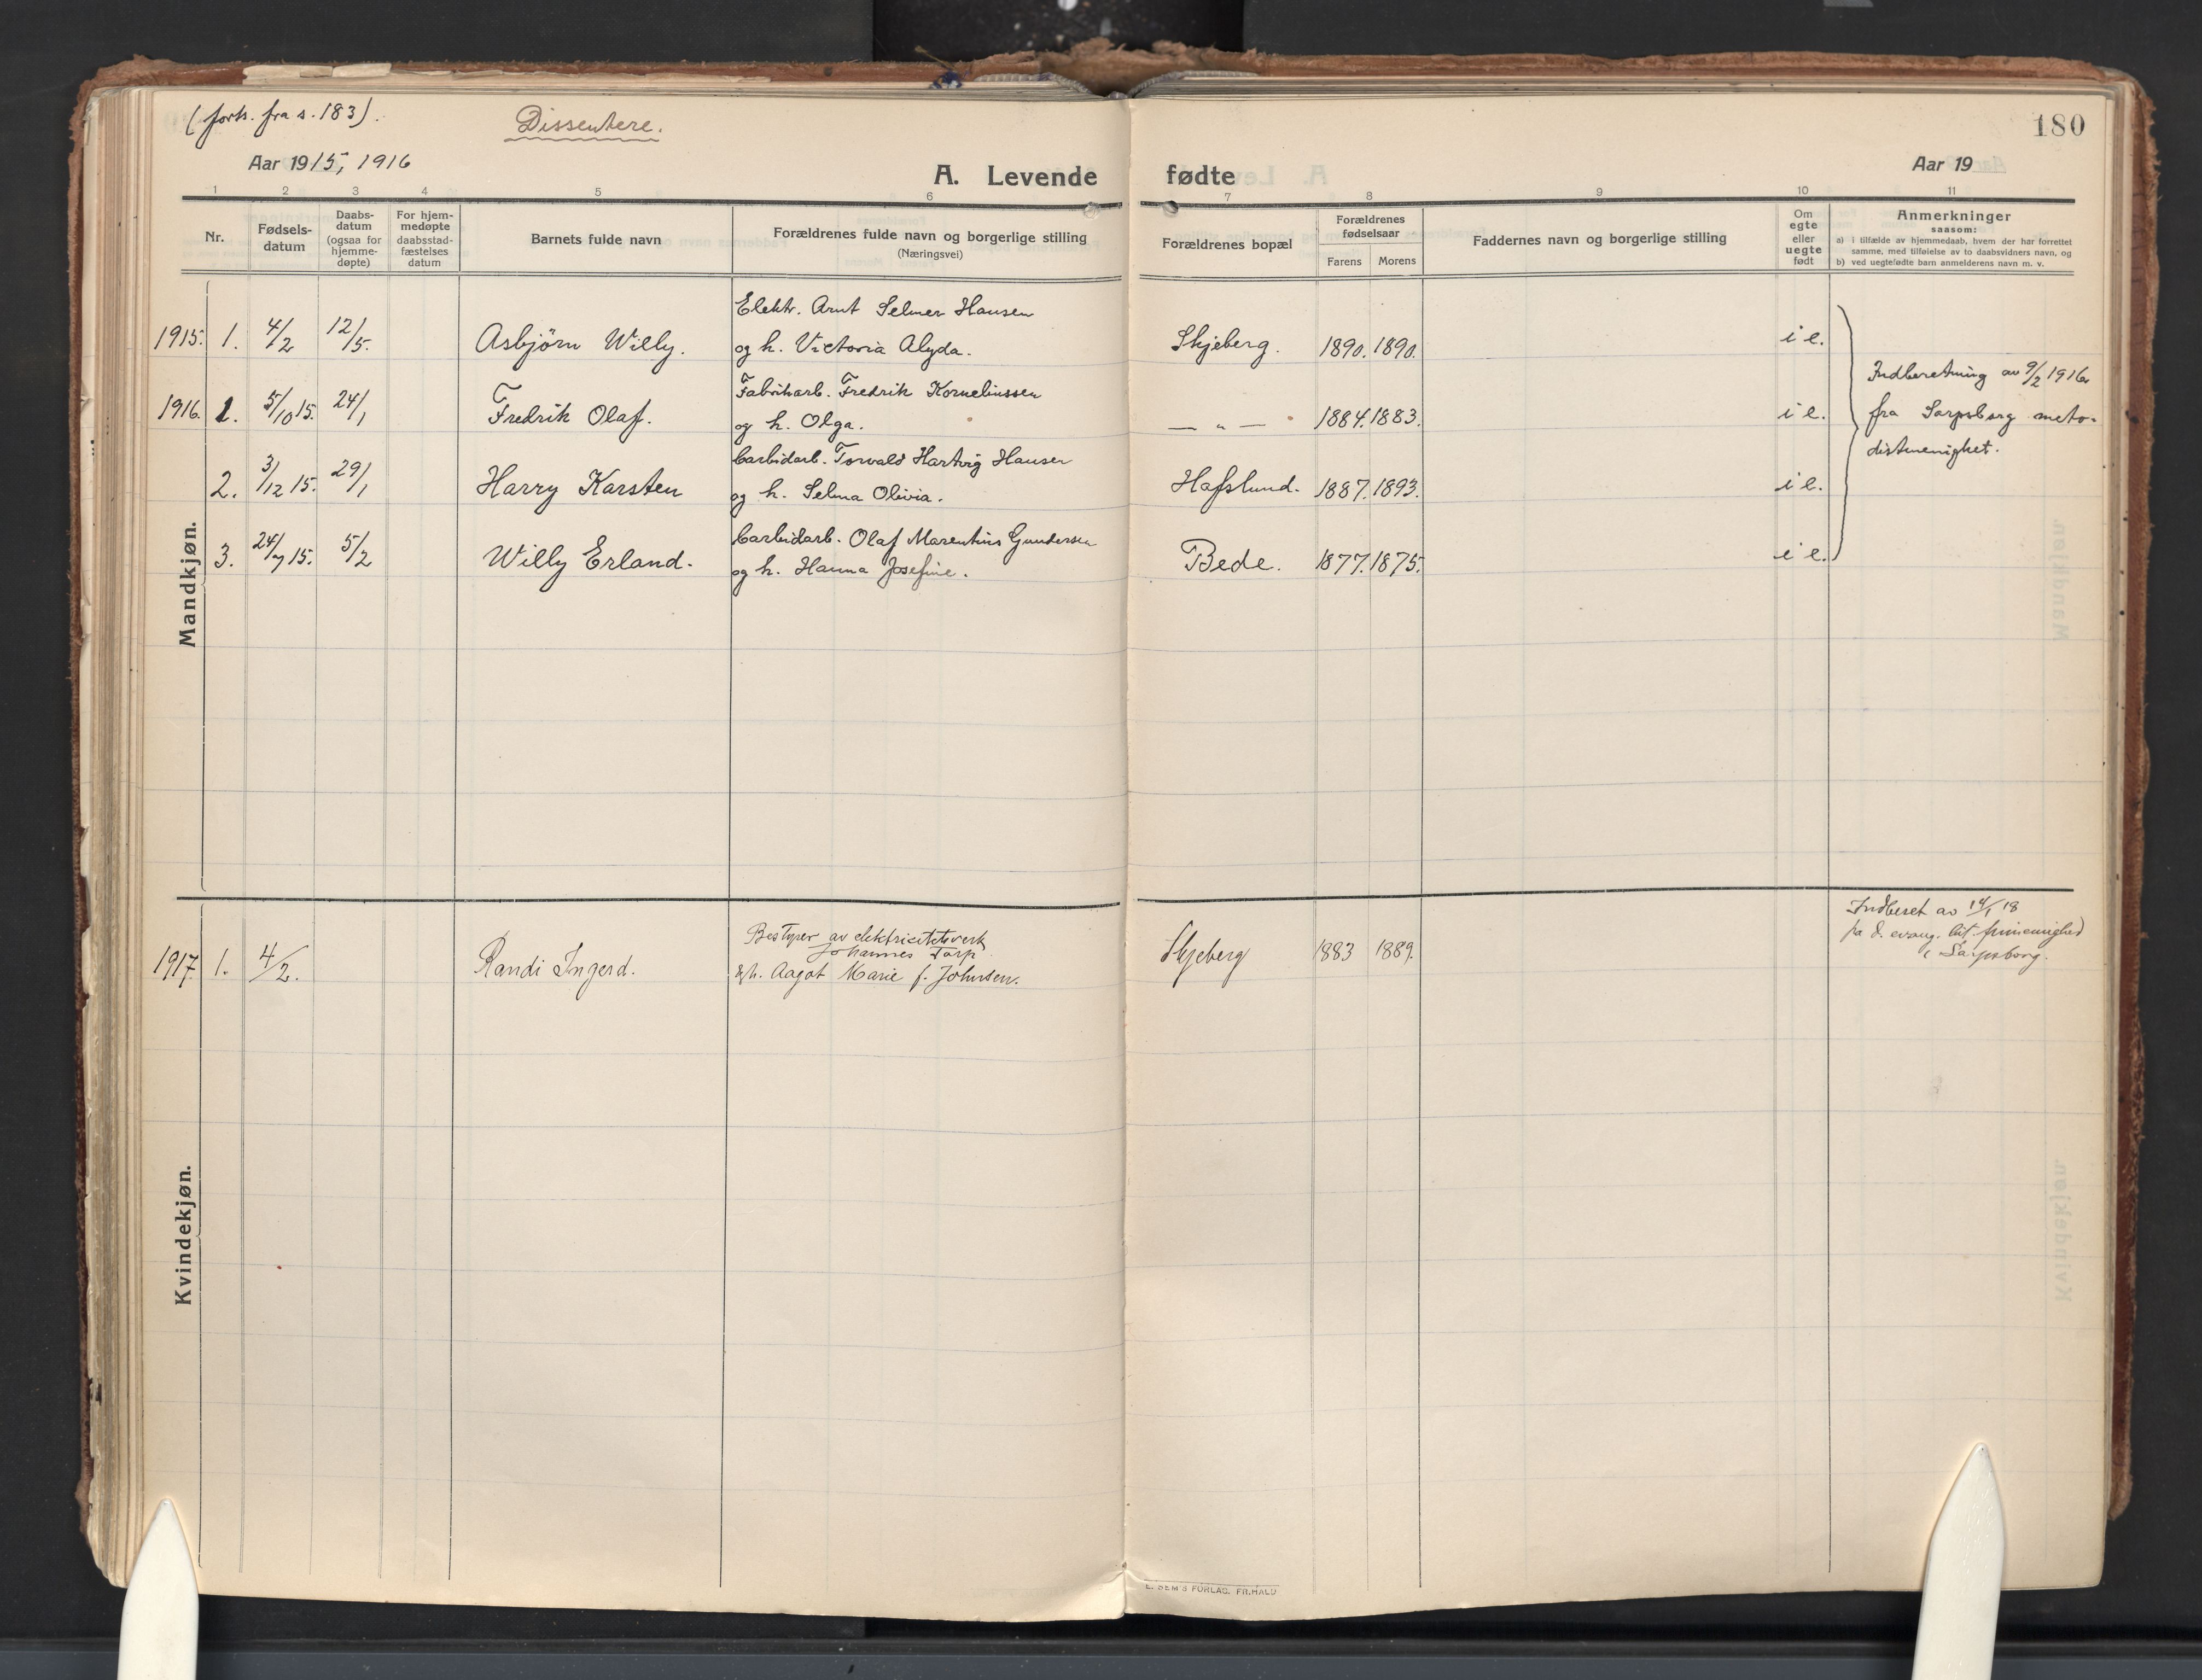 (forts. fra s. 183).
Dissentere.
180
Aar 1915, 1916
A. Levende fødte
Aar 19
1 2 3 4 5 6 7 8 9 10 11
Nr.
Fødsels-
datum
Daabs-
datum
(ogsaa for
hjemme-
døpte)
For hjem-
medøpte
daabsstad-
fæstelses
datum
Barnets fulde navn
Forældrenes fulde navn og borgerlige stilling
(Næringsvei)
Forældrenes bopæl
Forældrenes
fødselsaar
Farens Morens
Faddernes navn og borgerlige stilling
Om
egte
eller
uegte
født
Anmerkninger
saasom:
a) i tilfælde av hjemmedaab, hvem der har forrettet
samme, med tilføielse av to daabsvidners navn, og
b) ved uegtefødte barn anmelderens navn m. v.
Mandkjøn.
1915. 1. 4/2 12/5. Asbjörn Willy. Elektr. Arnt Selmer Hansen
og h. Victoria Alyda. Skjeberg. 1890. 1890. i e.
1916. 1. 5/10 15. 24/1 Fredrik Olaf. Fabrikarb. Fredrik Korneliussen
og h. Olga. — „ — 1884. 1883. i e.
2. 3/12 15. 29/1 Harry Karsten Carbidarb. Torvald Hartvig Hansen
og h. Selma Olivia. Hafslund. 1887. 1893. i e.
3. 24/7 15. 5/2 Willy Erland. Carbidarb. Olaf Marentius Gundersen
og h. Hanna Josefine. Bede. 1877. 1875. i e.
Indberetning av 9/2 1916
fra Sarpsborg meto-
distmenighet.
Kvindekjøn.
1917. 1. 4/2. Randi Ingerd. Bestyrer av elektricitetsverk
Johannes Torp
& h. Aagot Marie f. Johnsen. Skjeberg 1883 1889.
Indberet av 14/1 18
fra d. evang. lut. frimenighed
i Sarpsborg.
E. SEM'S FORLAG, FR.HALD